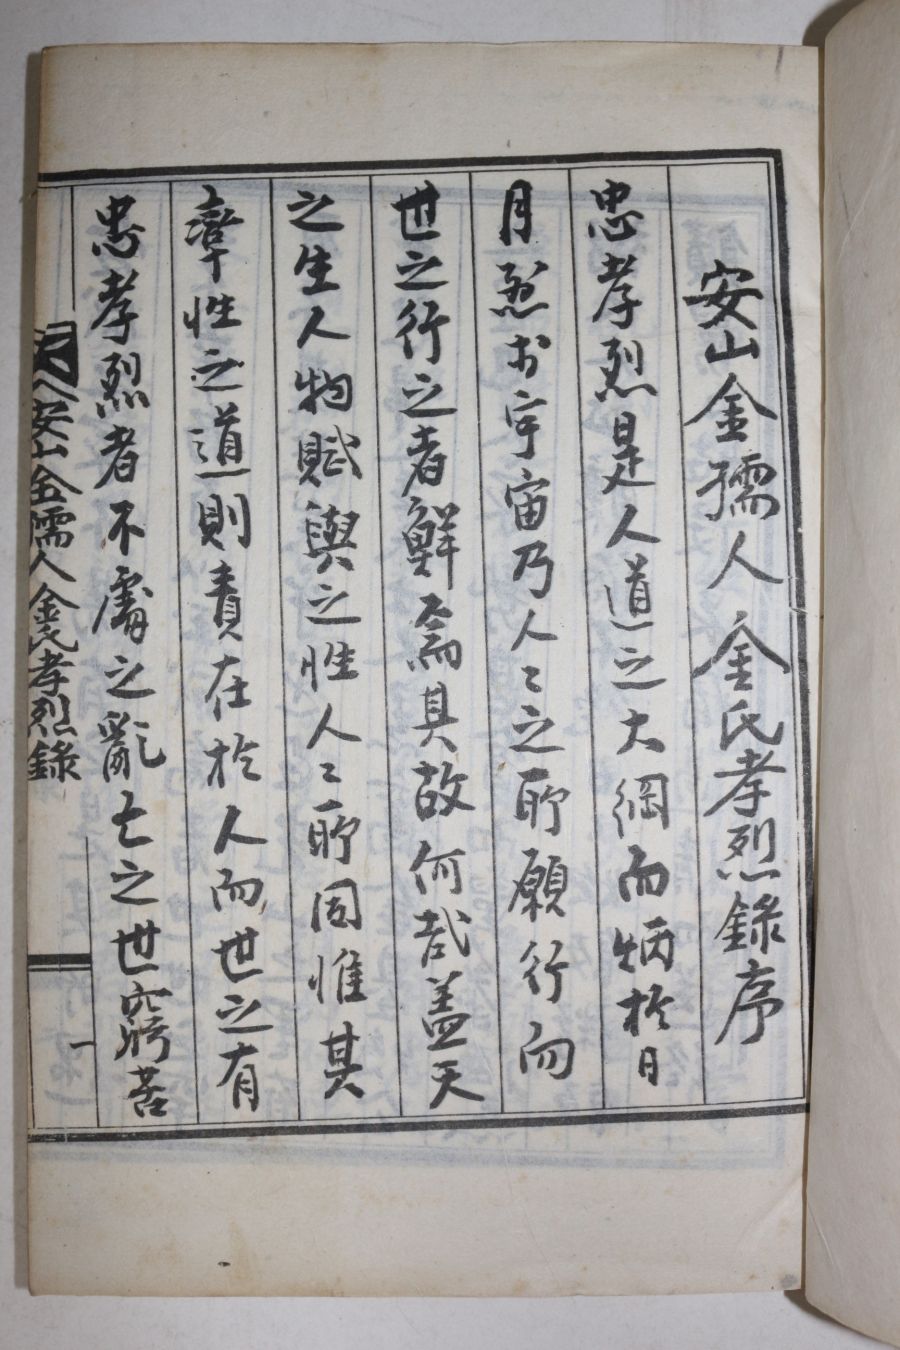 安山金孺人金氏孝烈錄序
忠孝烈是人道之大綱而炳於日
月亙於宇宙乃人〻之所願行而
世之行之者鮮焉其故何哉蓋天
之生人物賦與之性人〻所固惟其
率性之道則責在於人而世之有
忠孝烈者不處之亂亡之世窮苦
安山金孺人金氏孝烈錄
一